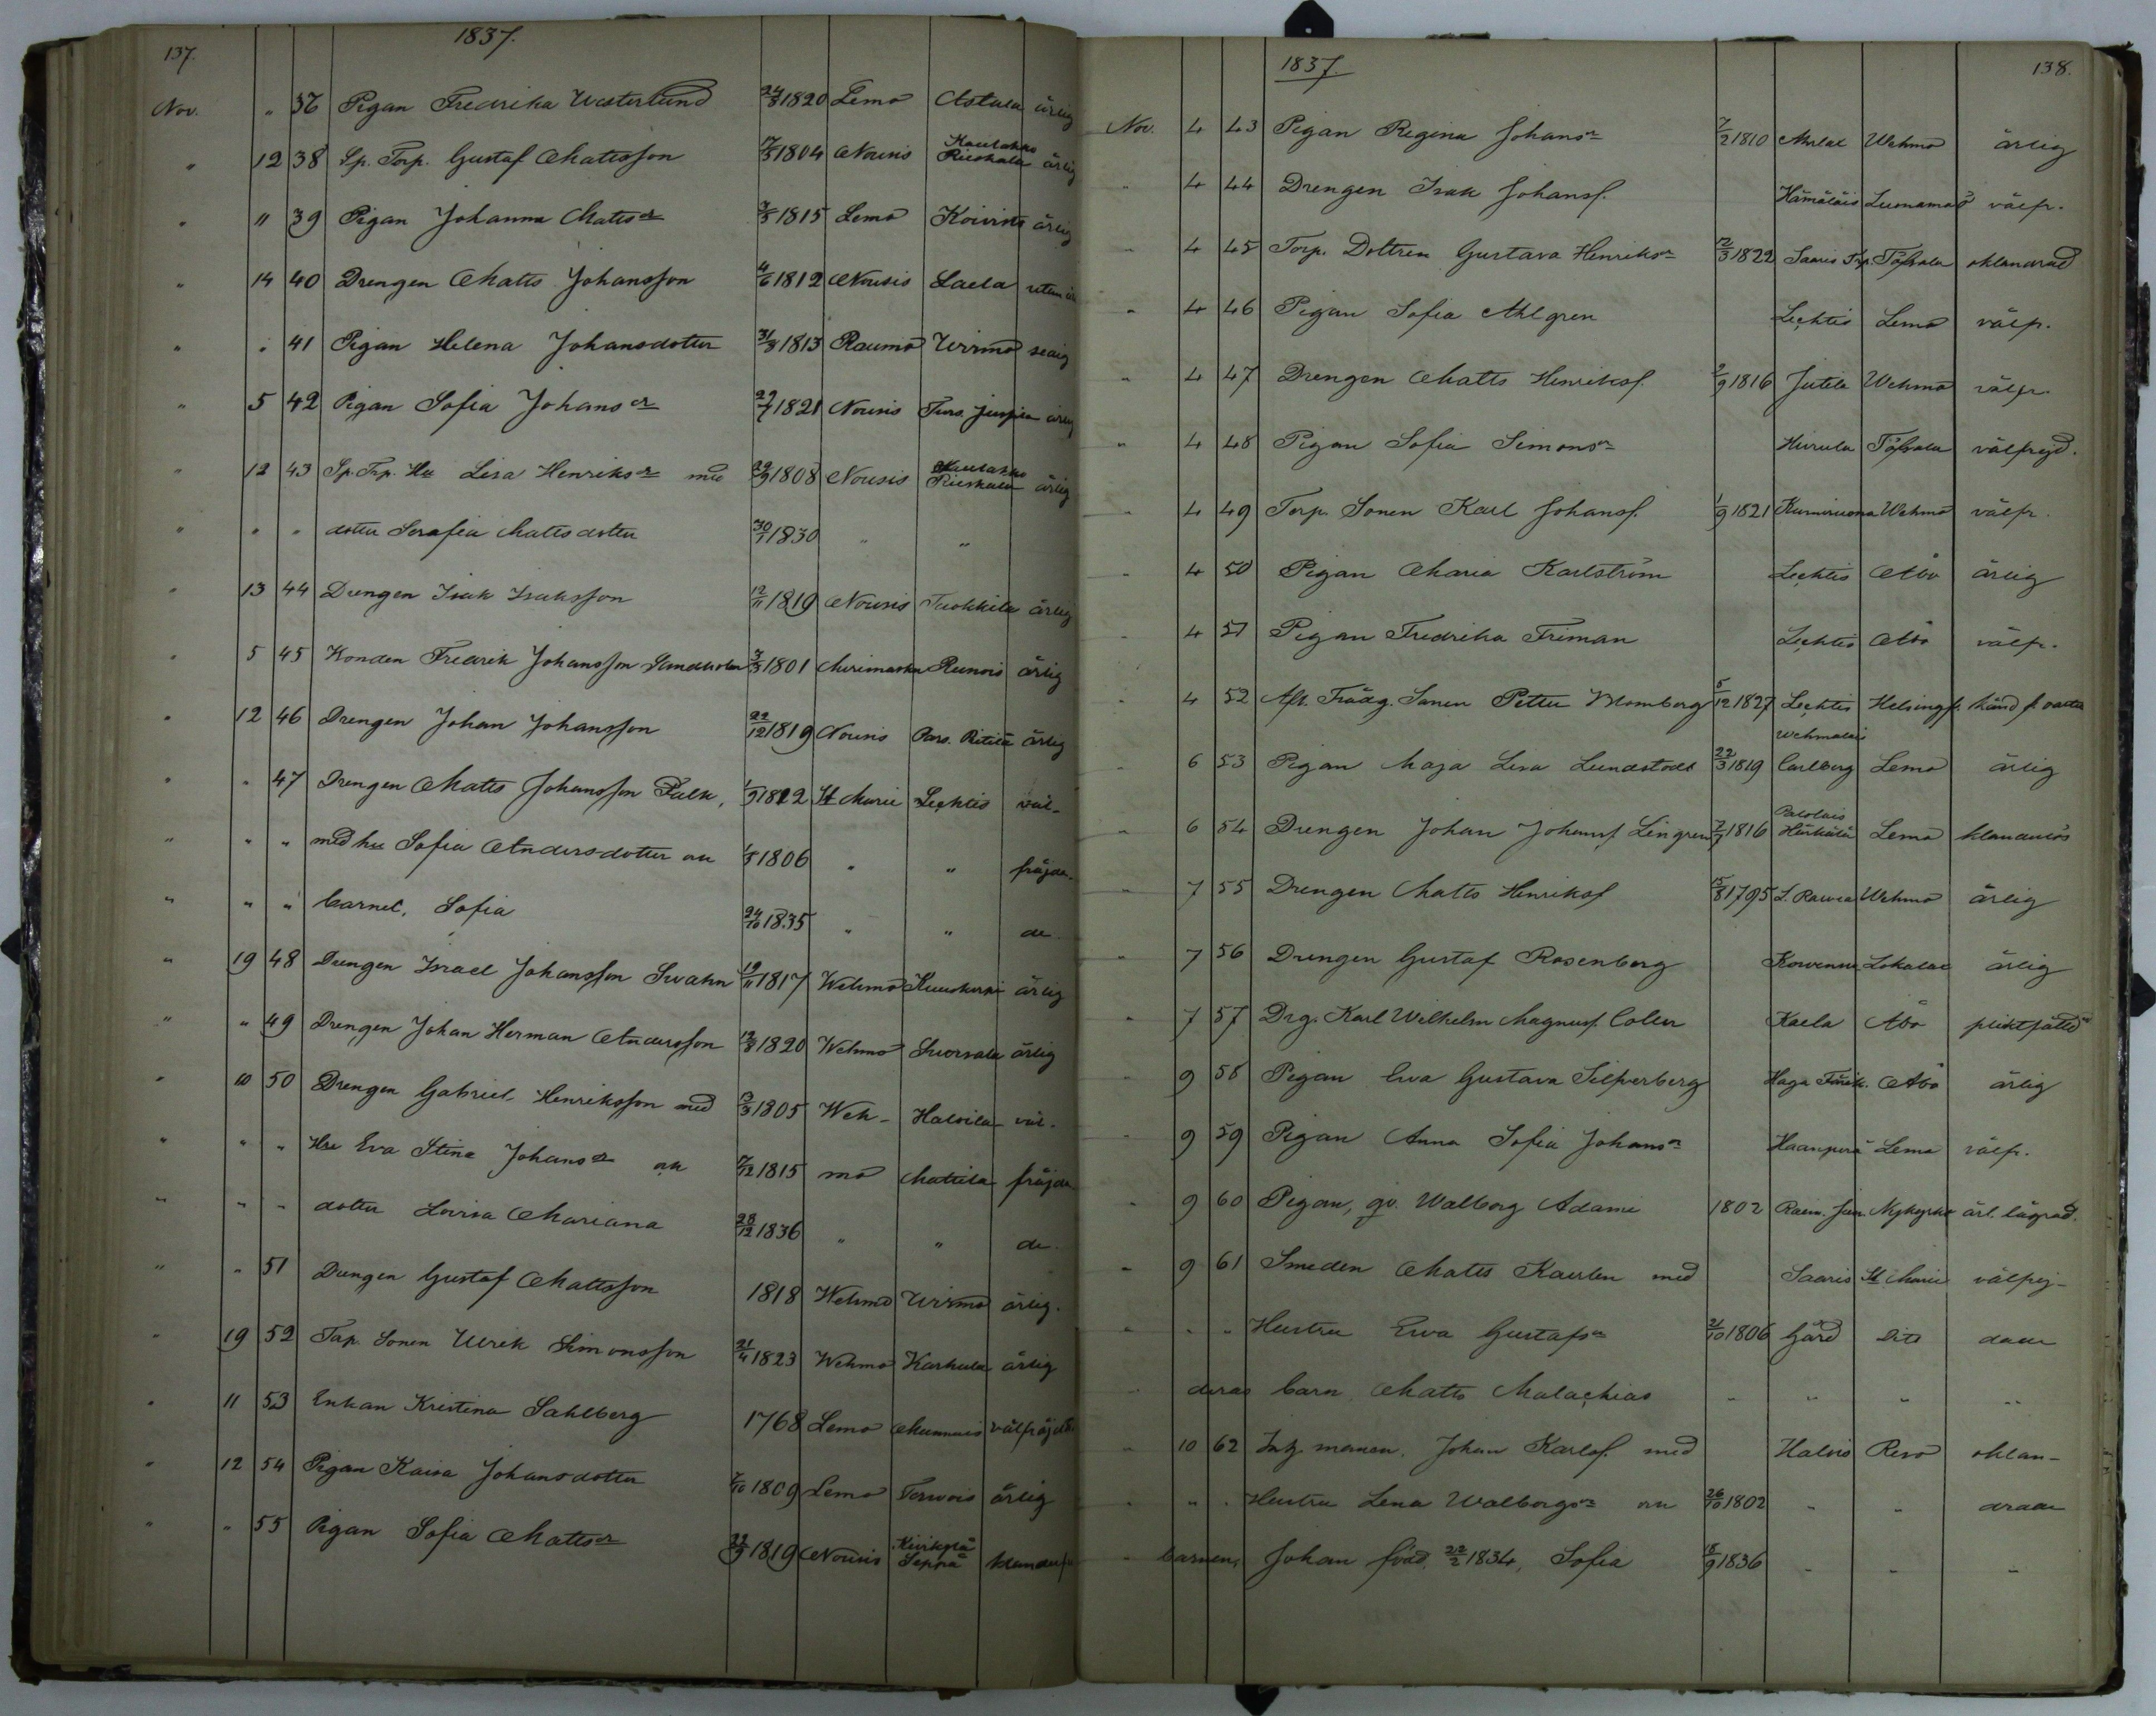 137. 1837.
Nov. " 36 Pigan Fredrika Westerlund 24/3 1820 Lemo Astala ärlig
" 12 38 Sp. Torp. Gustaf Mattsson 17/5 1804 Nousis Kaulakko Rieskala ärlig
" 11 39 Pigan Johanna Matts dr 3/5 1815 Lemo Koivisto ärlig
" 14 40 Drengen Matts Johansson 4/6 1812 Nousis Laela utan
" " 41 Pigan Helena Johansdotter 31/3 1813 Raumo Wirmo
" 5 42 Pigan Sofia Johans dr 29/7 1821 Nousis ärlig
" 12 43 Sp. Trp. Hu Lisa Henriks dr med 29/9 1808 Nousis Kaulakko Rieskala ärlig
" " " dotter Serafia Mattsdotter 30/1 1830 " "
" 13 44 Drengen Isak Isaksson 12/11 1819 Nousis Tuokkila ärlig
" 5 45 Konden Fredrik Johansson Sandholm 3/3 1801 Mierimasku Runois ärlig
" 12 46 Drengen Johan Johansson 22/12 1819 Nousis Pars. Pitilä ärlig
" " 47 Drengen Matts Johansson Falk, 1/9 1812 St Marie Lechtis väl-
" " " med hu Sofia Andersdotter an 1/5 1806 " " fräjda.
" " " barnet, Sofia 24/10 1835 " " de
" 19 48 Drengen Israel Johansson Swahn 19/11 1817 Wehmo Kuuskorpi ärlig
" " 49 Drengen Johan Herman Andersson 12/8 1820 Wehmo Suorsala ärlig
" 10 50 Drengen Gabriel Henriksson med 9/3 1805 Weh- Halsila väl-
" " " Hu Eva Stina Johans dr an 7/12 1815 mo Mattila fräjda
" " " dotter Lovisa Mariana 28/12 1836 " " de.
" " 51 Drengen Gustaf Mattsson 1818 Wehmo Wirmo ärlig.
" 19 52 Torp. Sonen Ulrik Simonsson 21/4 1823 Wehmo Karhula ärlig
" 11 53 Enkan Kristina Sahlberg 1768 Lemo Munnais välfräjdt.
" 12 54 Pigan Kaisa Johansdotter 7/10 1809 Lemo Terwois ärlig
" " 55 Pigan Sofia Matts dr 22/9 1819 Nousis Kirkylä Seppä
1837. 138.
Nov. 4 43 Pigan Regina Johans dr 7/2 1810 Ahrlal Wehmo ärlig
" 4 44 Drengen Isak Johansf. Hämäläis Luonamaa välfr.
" 4 45 Torp. Dottren Gustava Henriks dr 12/3 1822 Saaris Trp. Töfsala oklandrad
" 4 46 Pigan Sofia Ahlgren Lechtis Lemo välfr.
" 4 47 Drengen Matts Henriksf. 2/9 1816 Jutila Wehmo välfr.
" 4 48 Pigan Sofia Simons dr Hirula Töfsala välfrejd.
" 4 49 Torp. Sonen Karl Johansf. 1/9 1821 Wehmo välfr.
" 4 50 Pigan Maria Karlström Lechtis Åbo ärlig
" 4 51 Pigan Fredrika Friman Lechtis Åbo välfr.
" 4 52 Afl. Trädg. Sonen Petter Blomberg 5/12 1827 Lechtis Helsingf. känd f.
" 6 53 Pigan Maja Lisa Lundstedt 22/3 1819 Wehmalais Carlberg Lemo ärlig
" 6 54 Drengen Johan Johansf Lingren 2/7 1816 Palolais Härkälä Lemo klanderlös
" 7 55 Drengen Matts Henriksf 15/8 1795 L. Rawea Wehmo ärlig
" 7 56 Drengen Gustaf Rosenberg Lokalax ärlig
" 7 57 Drg. Karl Wilhelm Magnusf. Colen Kaela Åbo
" 9 58 Pigan Ewa Gustava Silfverberg Haga Fabrik. Åbo ärlig
" 9 59 Pigan Anna Sofia Johans dr Haanperä Lemo välfr.
" 9 60 Pigan, qv. Walborg Adami 1802 Raum. Nykyrko ärl. lägrad.
" 9 61 Smeden Matts Kaulen med Saaris St Marie välfrej-
" " " Hustru Ewa Gustafs dr 21/10 1806 Gård Dito dade
" deras barn Matts Malachias " " " "
" 10 62 Inh. mannen. Johan Karlsf. med Halvis Reso oklan-
" " " Hustru Lena Walborgs dr an 26/10 1802 " " drade
" barnen, Johan född 22/2 1834, Sofia 18/9 1836 " " "